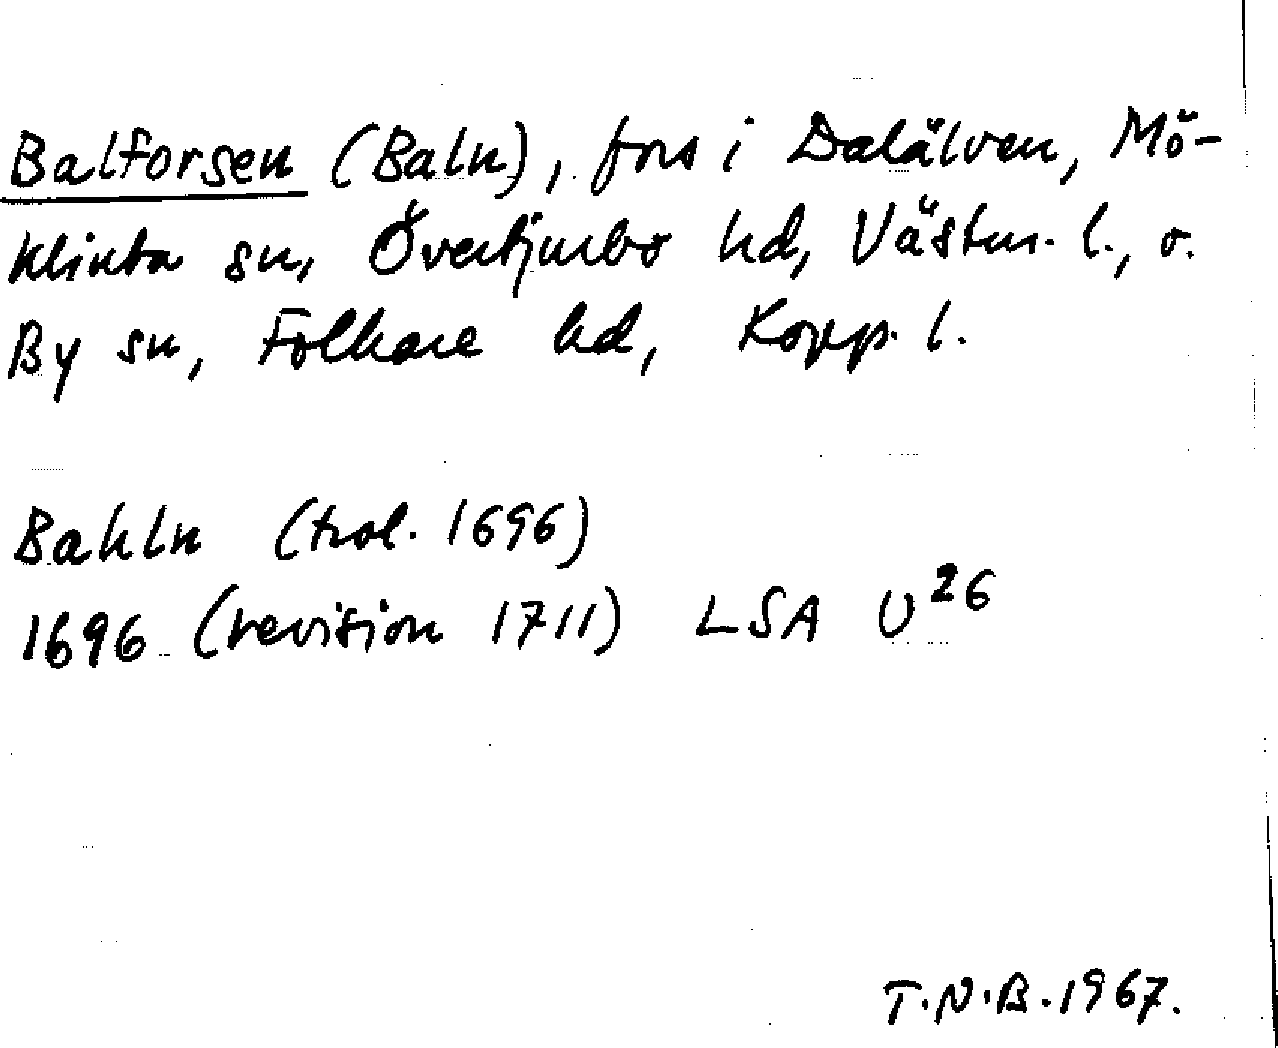 Balforsen (Baln), fors i Dalälven, Mö-
klinta sn, Övertjurbo hd, Västm. l., o.
By sn, Folkare hd, Kopp. l.
Bahln (trol. 1696)
1696 (revision 1711) LSA U 26
T.N.B. 1967.